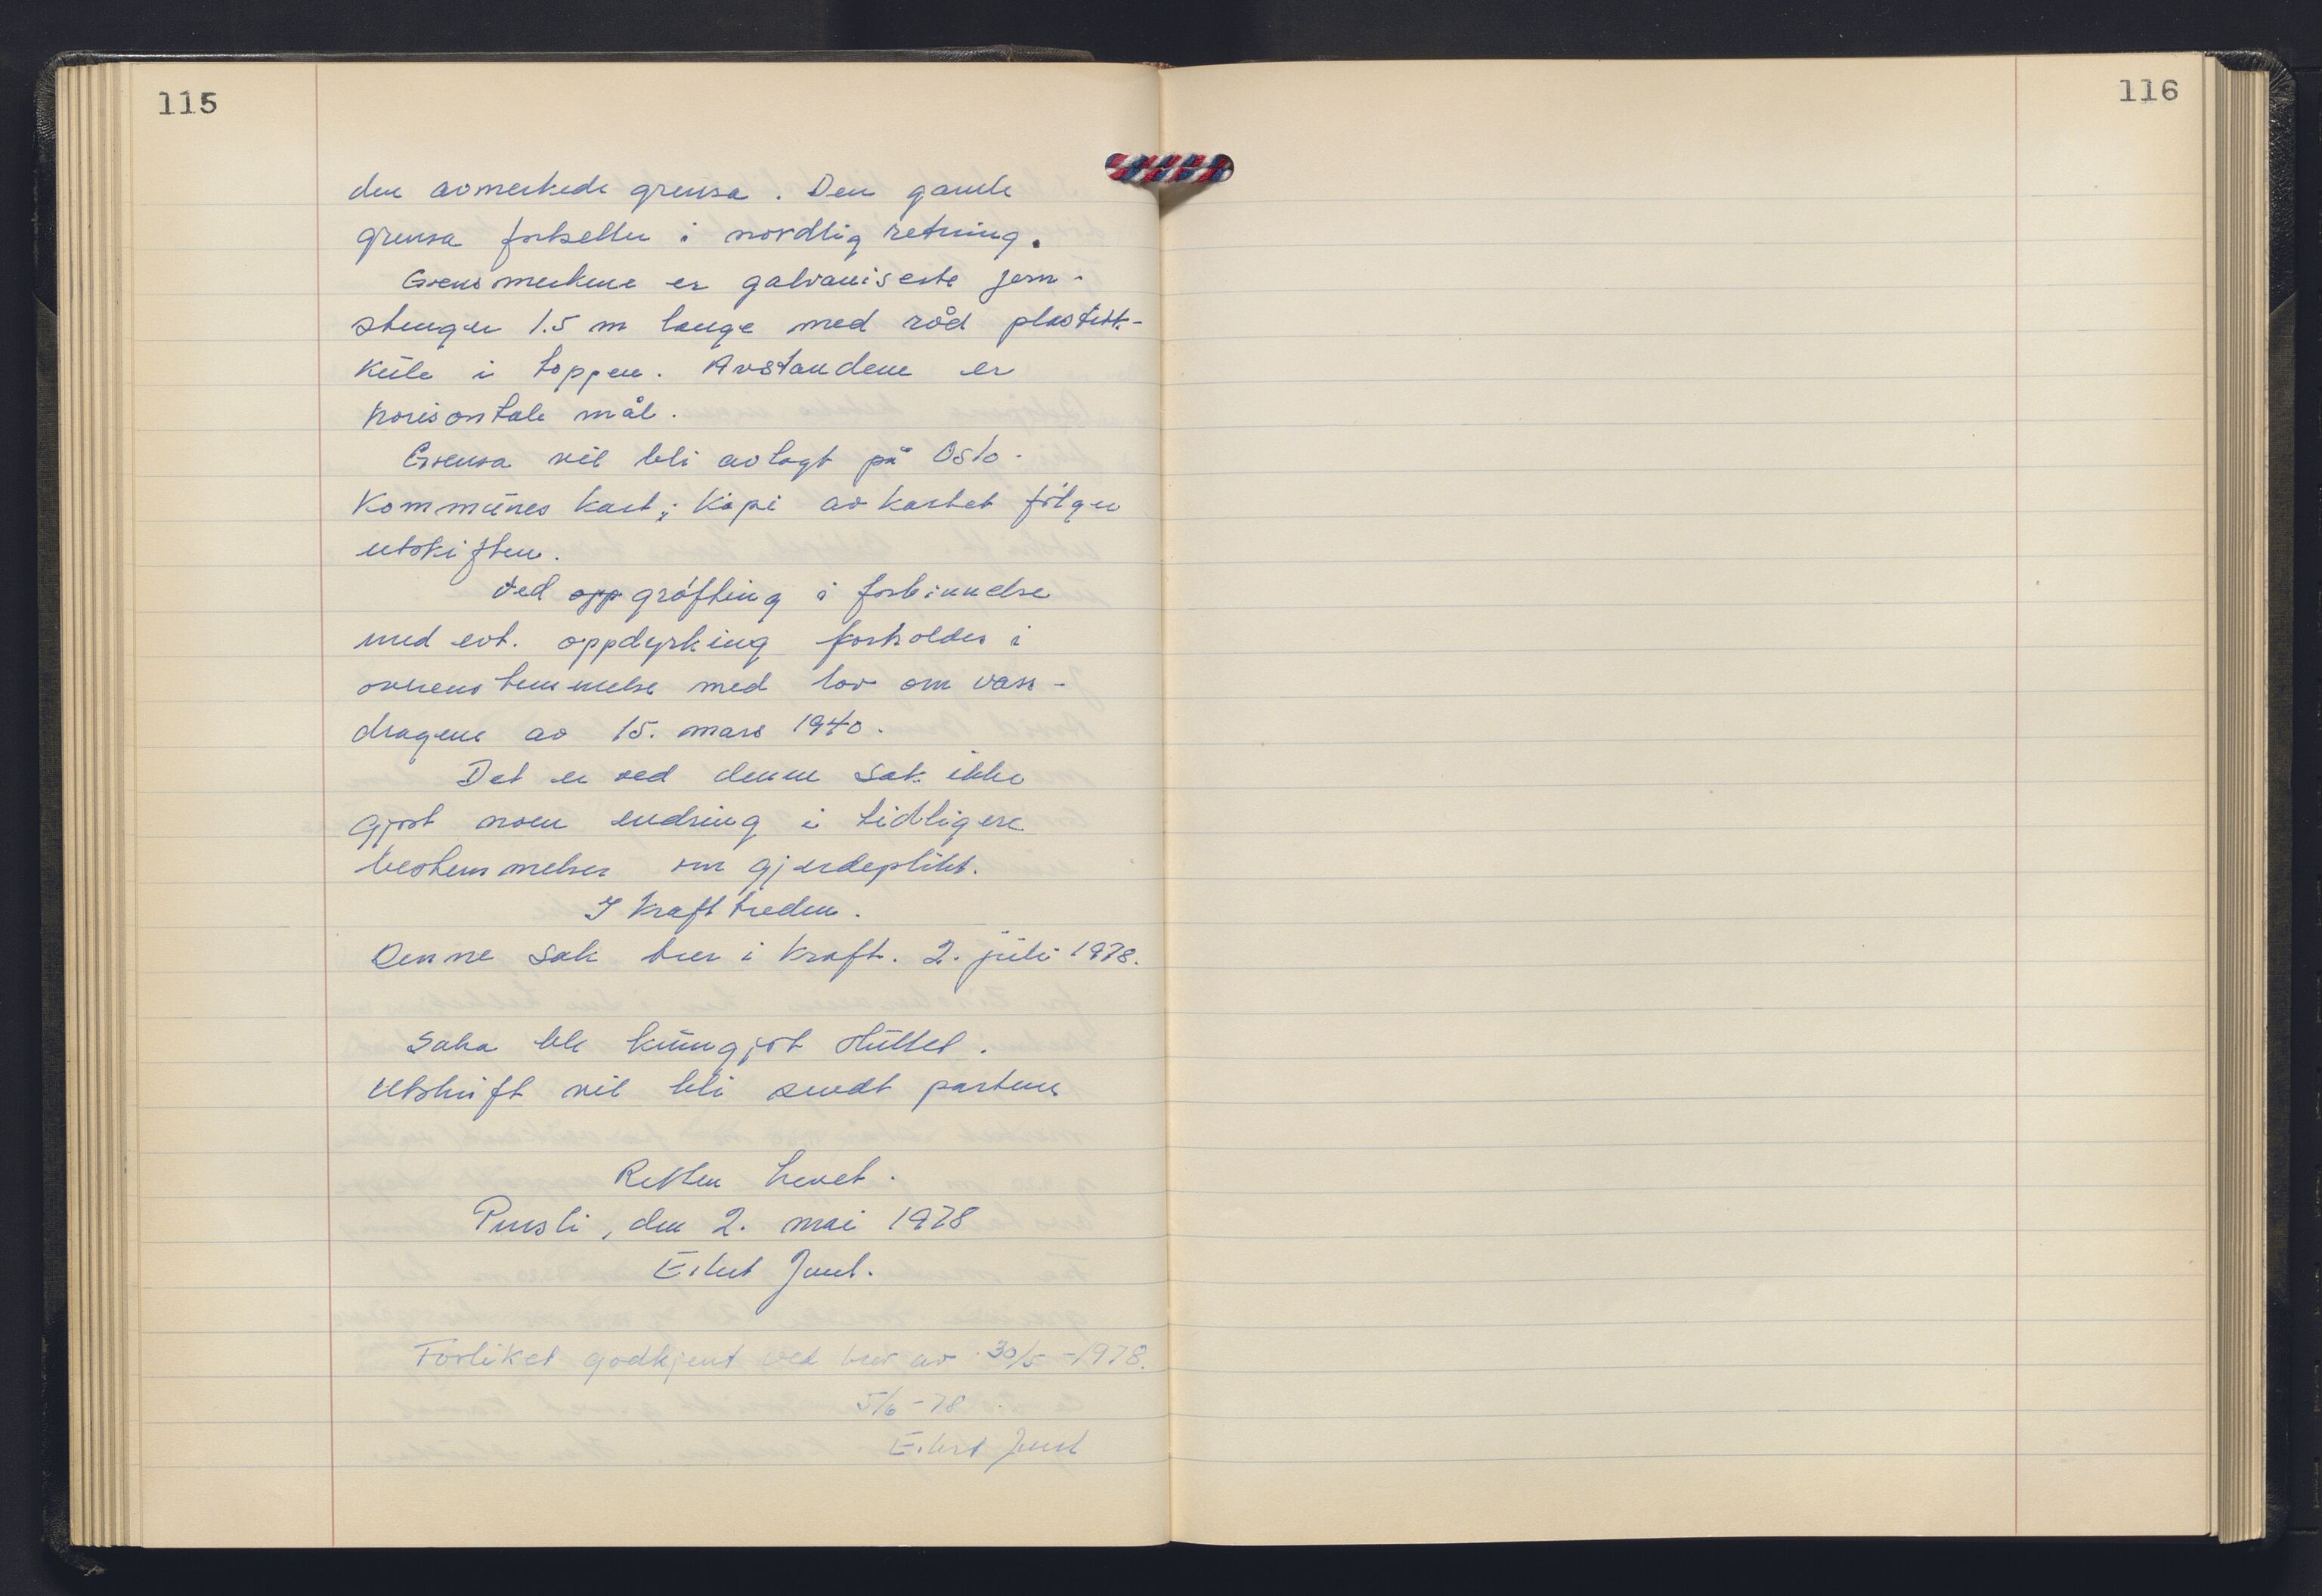 115
den avmerkede grensa. Den gamle
grensa fortsetter i nordlig retning.
Grensmerkene er galvaniserte jern-
stenger 1.5 m lange med rød plastikk-
kule i toppen. Avstandene er
horisontale mål.
Grensa vil bli avlagt på Oslo
Kommunes kart; Kopi av kartet følger
utskiften.
Ved opp grøfting i forbinnelse
med evt. oppdyrking forholdes i
overenstemmelse med lov om vass-
dragene av 15. mars 1940.
Det er ved denne sak ikke
gjort noen endring i tidligere
bestemmelser om gjerdeplikt.
I kraft treden.
Denne sak trer i kraft. 2. juli 1978.
Saka ble kunngjort sluttet.
Utskrift vil bli sendt partene
Retten hevet.
den 2. mai 1978
Eilert Juul.
Forliket godkjent ved brev av 30/5 -1978.
5/6 -78
Eilert Juul
116